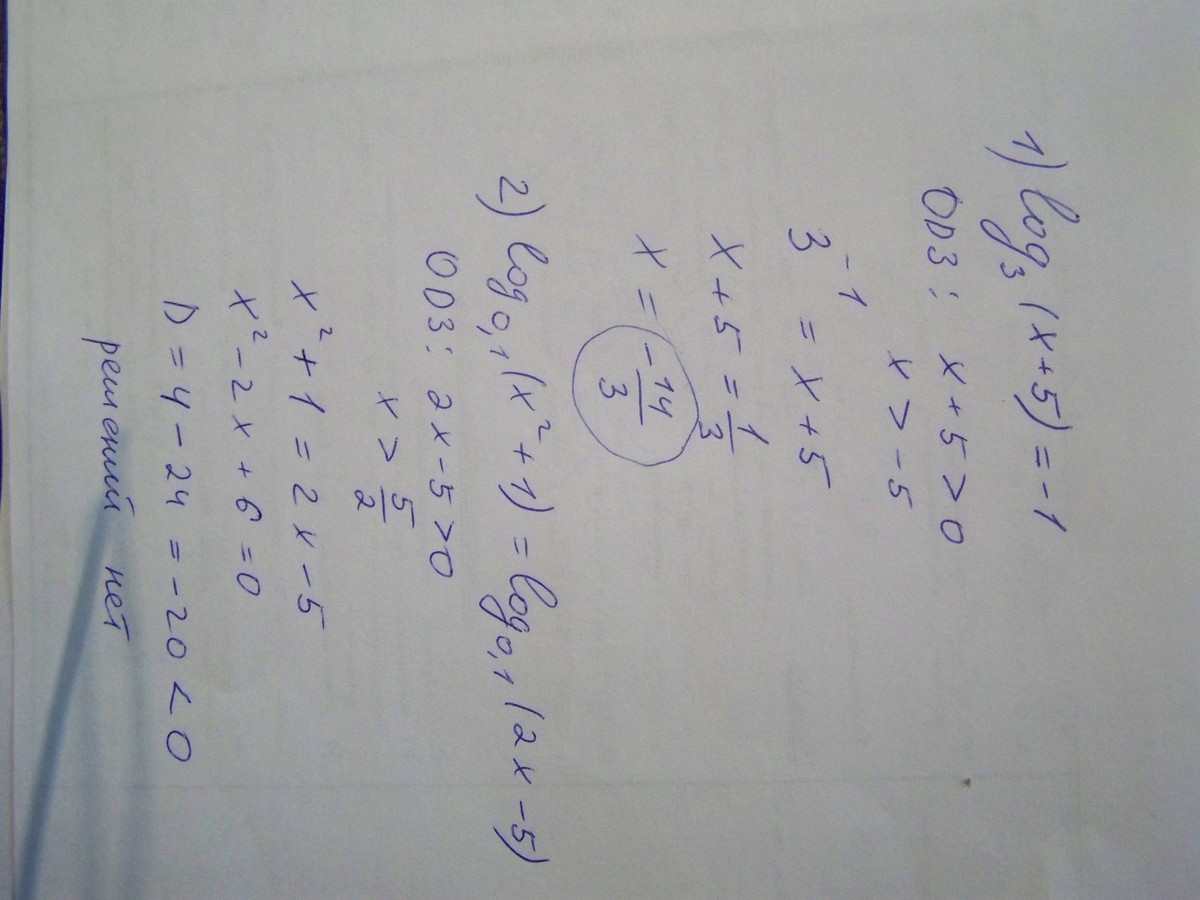 1) log₃ (x+5) = -1
ОДЗ: x+5>0
x > -5
3⁻¹ = x+5
x+5 = 1/3
x = -14/3
2) log₀,₁ (x²+1) = log₀,₁ (2x-5)
ОДЗ: 2x-5>0
x > 5/2
x²+1 = 2x-5
x²-2x+6=0
D=4-24=-20<0
решений нет